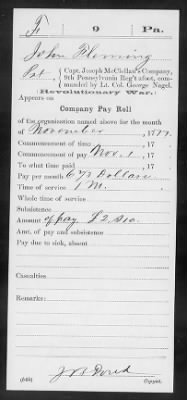 F 9 Pa.
John Fleming
Pvt., Capt. Joseph McClellan's Company,
9th Pennsylvania Reg't afoot, com-
manded by Lt. Col. George Nagel.
(Revolutionary War.)
Appears on
Company Pay Roll
of the organization named above for the month
of November, 1777.
Commencement of time, 17
Commencement of pay Nov. 1, 17
To what time paid, 17
Pay per month 6 2/3 Dollars
Time of service 1 M.
Whole time of service
Subsistence
Amount of pay £2.10.
Am't. of pay and subsistence
Pay due to sick, absent
Casualties
Remarks:
Copyist.